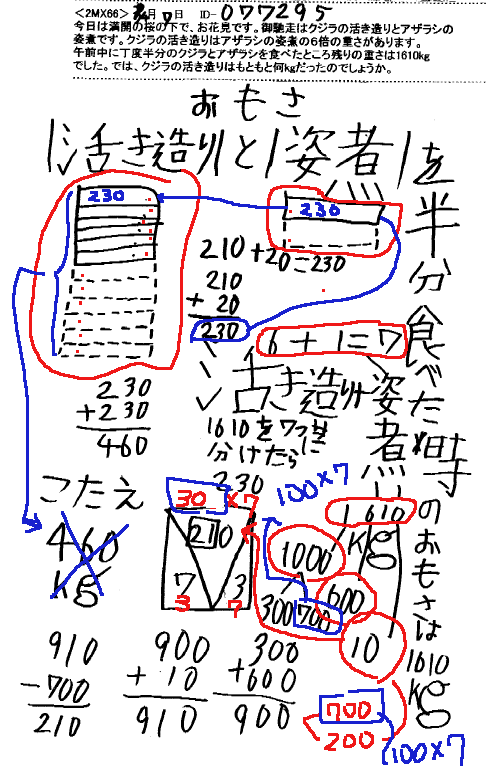 <2MX66> 月 日 ID- 077295
今日は満開の桜の下で、お花見です。御馳走はクジラの活き造りとアザラシの
姿煮です。クジラの活き造りはアザラシの姿煮の6倍の重さがあります。
午前中に丁度半分のクジラとアザラシを食べたところ残りの重さは1610kg
でした。では、クジラの活き造りはもともと何kgだったのでしょうか。
おもさ
活き造りと姿煮を
半分食べた時のおもさは1610kg
230
230
210+20=230
210
+ 20
230
6+1=7
活き造り
姿煮
1610を7つに
分けたら
230
230
+230
460
こたえ
460
kg
30 ×7
210
7 3
3 7
100×7
1610
kg
1000
600
300 700
10
910
-700
210
900
+ 10
910
300
+600
900
700
200
100×7